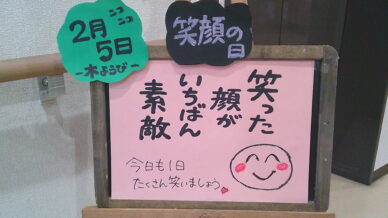 ニコニコ
2月
5日
-木ようび-
笑顔の
日
笑った
顔が
いちばん
素敵
今日も1日
たくさん笑いましょう。